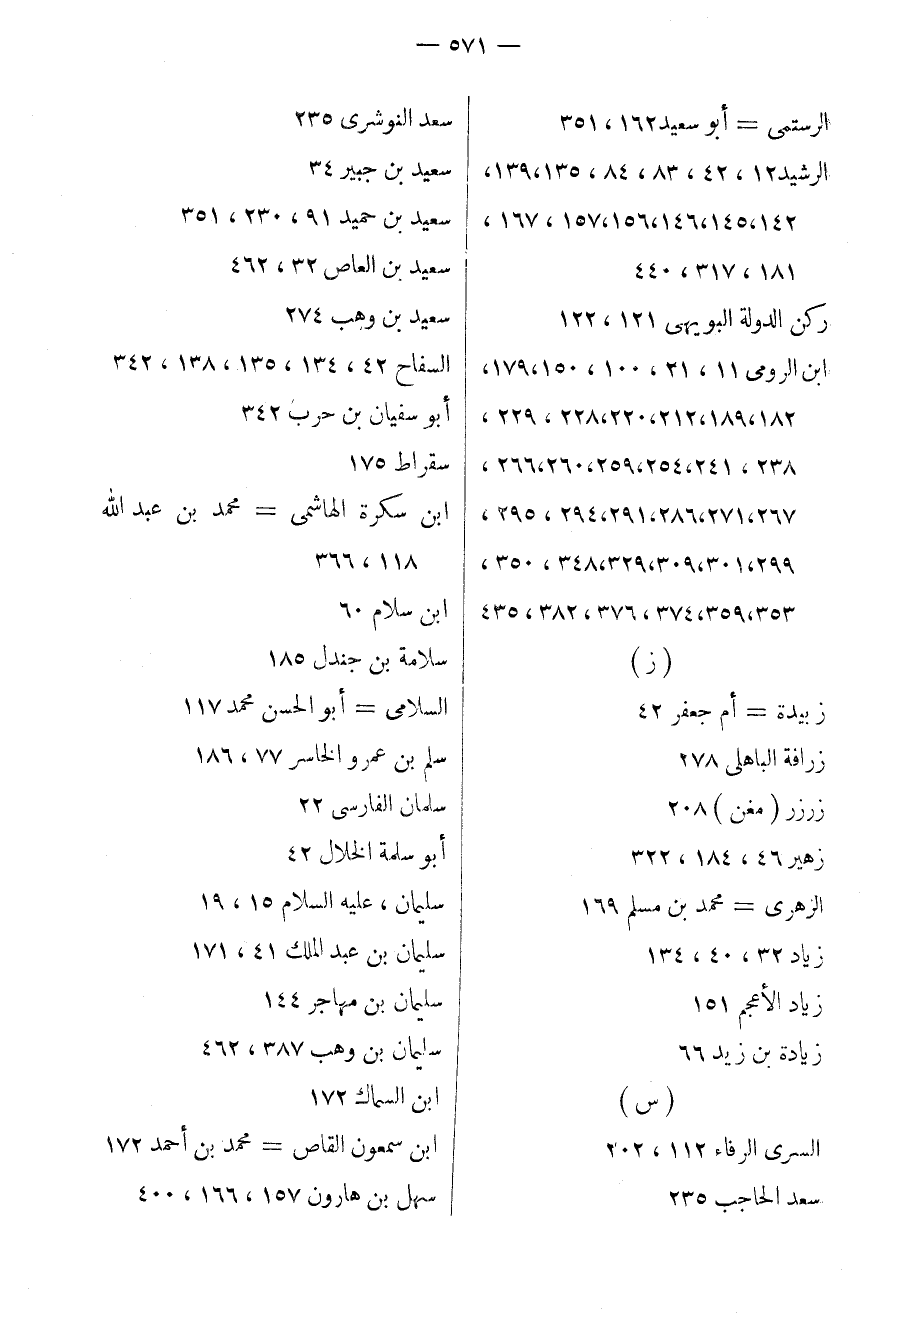 — ٥٧١ —
الرستمى = أبو سعيد١٦٢ ، ٣٥١
الرشيد١٢ ، ٤٢ ، ٨٣ ، ٨٤ ، ١٣٥،١٣٩،
١٤٢،١٤٥،١٤٦،١٥٦،١٥٧ ، ١٦٧ ،
١٨١ ، ٣١٧ ، ٤٤٠
ركن الدولة البويهى ١٢١ ، ١٢٢
ابن الرومى ١١ ، ٢١ ، ١٠٠ ، ١٥٠،١٧٩،
١٨٢،١٨٩،٢١٢،٢٢٠،٢٢٨ ، ٢٢٩ ،
٢٣٨ ، ٢٤١،٢٥٤،٢٥٩،٢٦٠،٢٦٦ ،
٢٦٧،٢٧١،٢٨٦،٢٩١،٢٩٤ ، ٢٩٥ ،
٢٩٩،٣٠١،٣٠٩،٣٢٩،٣٤٨ ، ٣٥٠ ،
٣٥٣،٣٥٩،٣٧٤ ، ٣٧٦ ، ٣٨٢ ، ٤٣٥
(ز)
زبيدة = أم جعفر ٤٢
زرافة الباهلى ٢٧٨
زرزر (مغن) ٢٠٨
زهير ٤٦ ، ١٨٤ ، ٣٢٢
الزهرى = محمد بن مسلم ١٦٩
زياد ٣٢ ، ٤٠ ، ١٣٤
زياد الأعجم ١٥١
زيادة بن زيد ٦٦
(س)
السرى الرفاء ١١٢ ، ٢٠٢
سعد الحاجب ٢٣٥
سعد النوشرى ٢٣٥
سعيد بن جبير ٣٤
سعيد بن حميد ٩١ ، ٢٣٠ ، ٣٥١
سعيد بن العاص ٣٢ ، ٤٦٢
سعيد بن وهب ٢٧٤
السفاح ٤٢ ، ١٣٤ ، ١٣٥ ، ١٣٨ ، ٣٤٢
أبو سفيان بن حرب ٣٤٢
سقراط ١٧٥
ابن سكرة الهاشمى = محمد بن عبد الله
١١٨ ، ٣٦٦
ابن سلام ٦٠
سلامة بن جندل ١٨٥
السلامى = أبو الحسن محمد ١١٧
سلم بن عمرو الخاسر ٧٧ ، ١٨٦
سلمان الفارسى ٢٢
أبو سلمة الخلال ٤٢
سليمان ، عليه السلام ١٥ ، ١٩
سليمان بن عبد الملك ٤١ ، ١٧١
سليمان بن مهاجر ١٤٤
سليمان بن وهب ٣٨٧ ، ٤٦٢
ابن السماك ١٧٢
ابن سمعون القاص = محمد بن أحمد ١٧٢
سهل بن هارون ١٥٧ ، ١٦٦ ، ٤٠٠